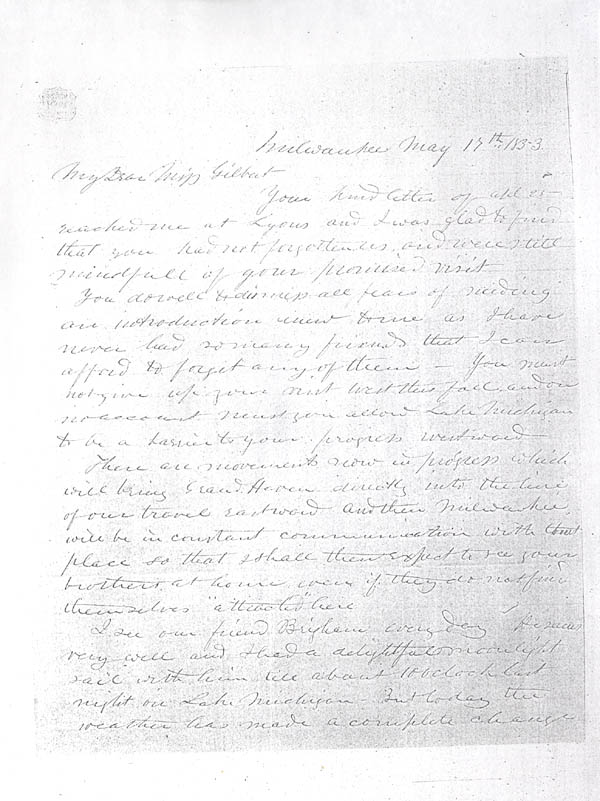 Milwaukee May 17th 1853.
My Dear Miss Gilbert
Your kind letter of
reached me at Lyons and I was glad to find
that you had not forgotten us, and were still
mindfull of your promised visit
You do well to dismiss all fears of needing
an introduction anew to me as I have
never had so many friends that I can
afford to forget any of them - You must
not give up your visit West this fall, and on
no account must you allow Lake Michigan
to be a barrier to your progress westward
There are movements now in progress which
will bring Grand Haven directly into the line
of our travel eastward and then Milwaukee
will be in constant communication with that
place so that I shall then expect to see your
brothers at home even if they do not find
themselves "attracted" here
I see our friend Brigham every day He is
very well and I had a delightful moonlight
sail with him till about 10 oclock last
night on Lake Michigan - But today the
weather has made a complete change